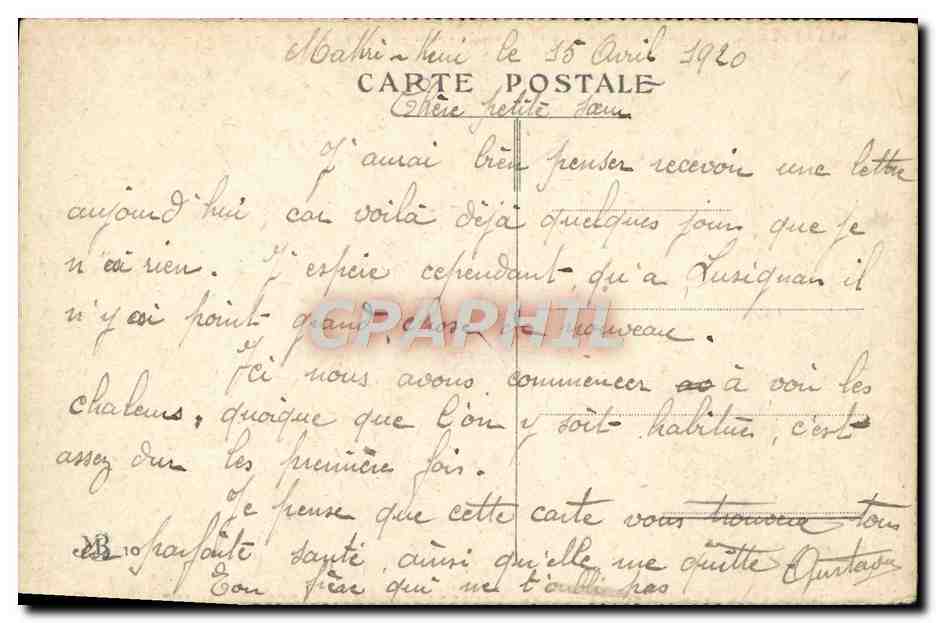 Makri-Keui le 15 Avril 1920
CARTE POSTALE
Chère petite sœur
J'aurai bien penser recevoir une lettre
aujourd'hui, car voilà déjà quelques jours que je
n'ai rien. J'espère cependant qu'a Lusignan il
n'y ai point grand chose de nouveau.
CPAPHIL
Ici nous avons commencer à voir les
chaleurs, quoique que l'on y soit habitués, c'est
assez dur les première fois.
Je pense que cette carte vous trouvera tous
en parfaite santé ainsi qu'elle me quitte Gustave
MB 10
Ton frère qui ne t'oublie pas